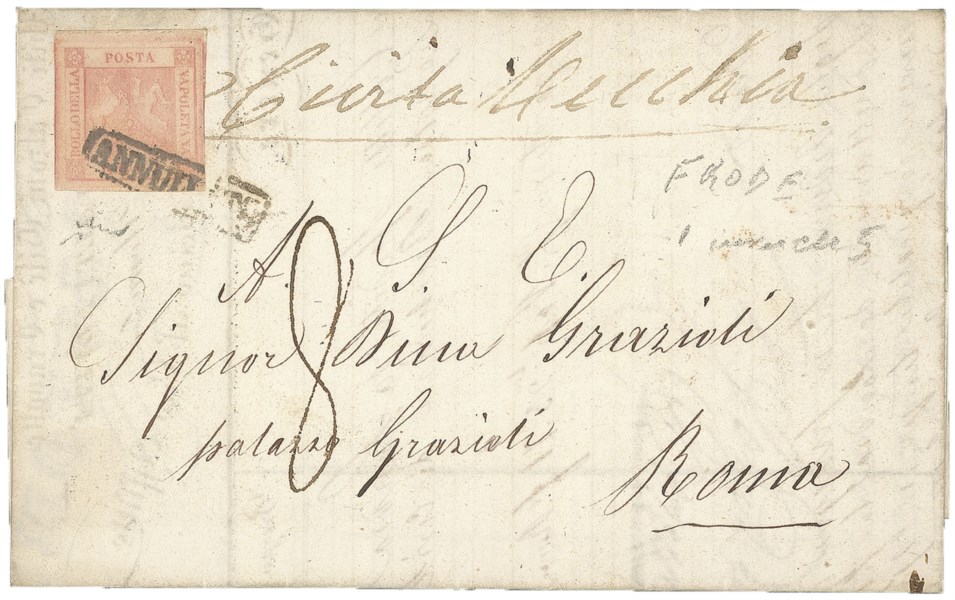 POSTA
BOLLO DELLA
NAPOLETANA
ANNULLATO
Civita Vecchia
FRODE
A. S. E.
8
Signor Duca Grazioli
palazzo Grazioli
Roma